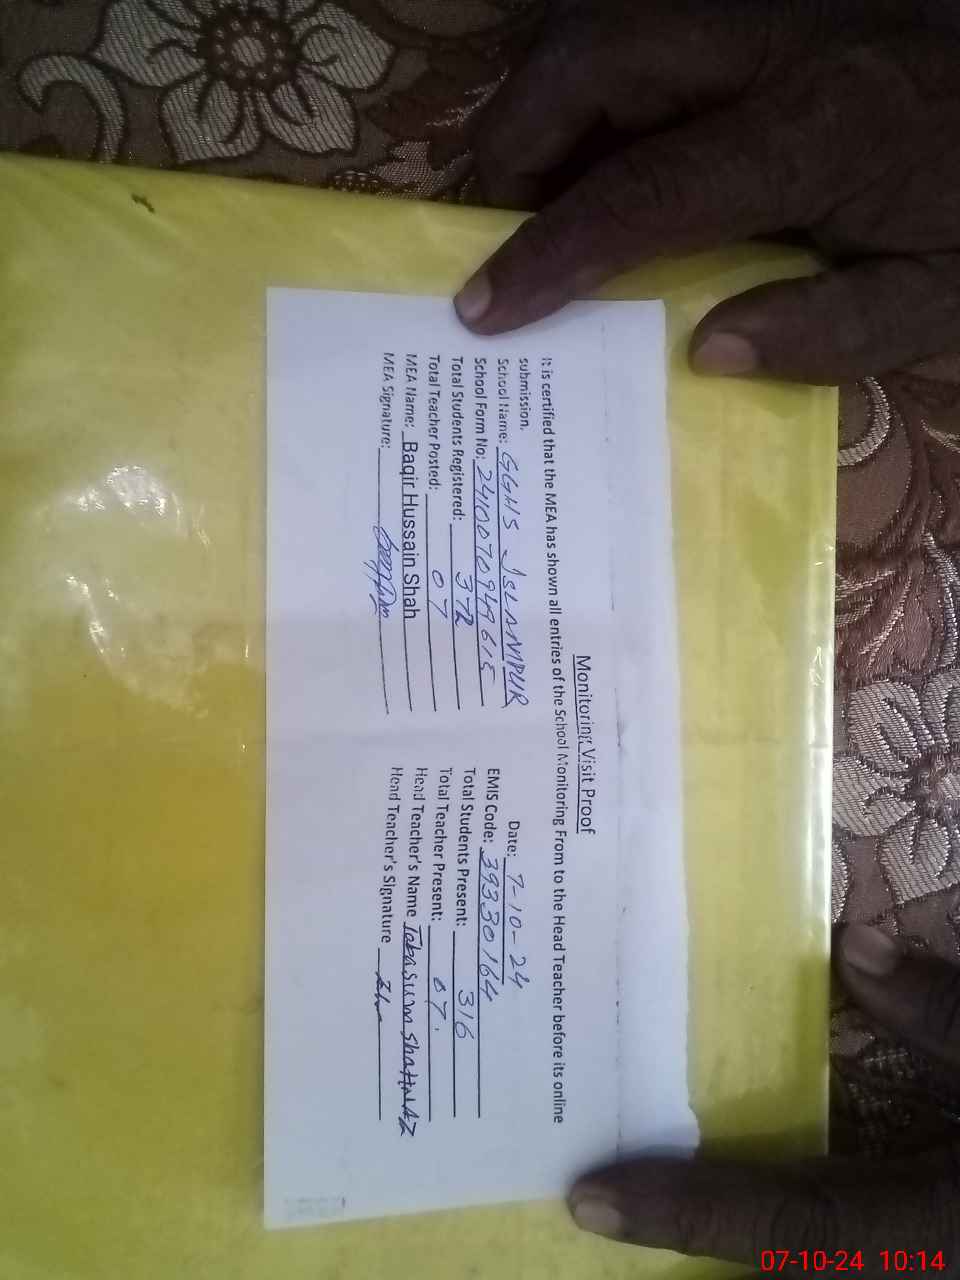 Monitoring Visit Proof
It is certified that the MEA has shown all entries of the School Monitoring From to the Head Teacher before its online
submission.
Date: 7-10-24
School Name: GGHS ISLAMPUR
EMIS Code: 39330164
School Form No: 2410070949615
Total Students Present: 316
Total Students Registered: 372
Total Teacher Present: 07.
Total Teacher Posted: 07
Head Teacher's Name Tabasum ShaHNAZ
MEA Name: Baqir Hussain Shah
Head Teacher's Signature
MEA Signature:
07-10-24 10:14